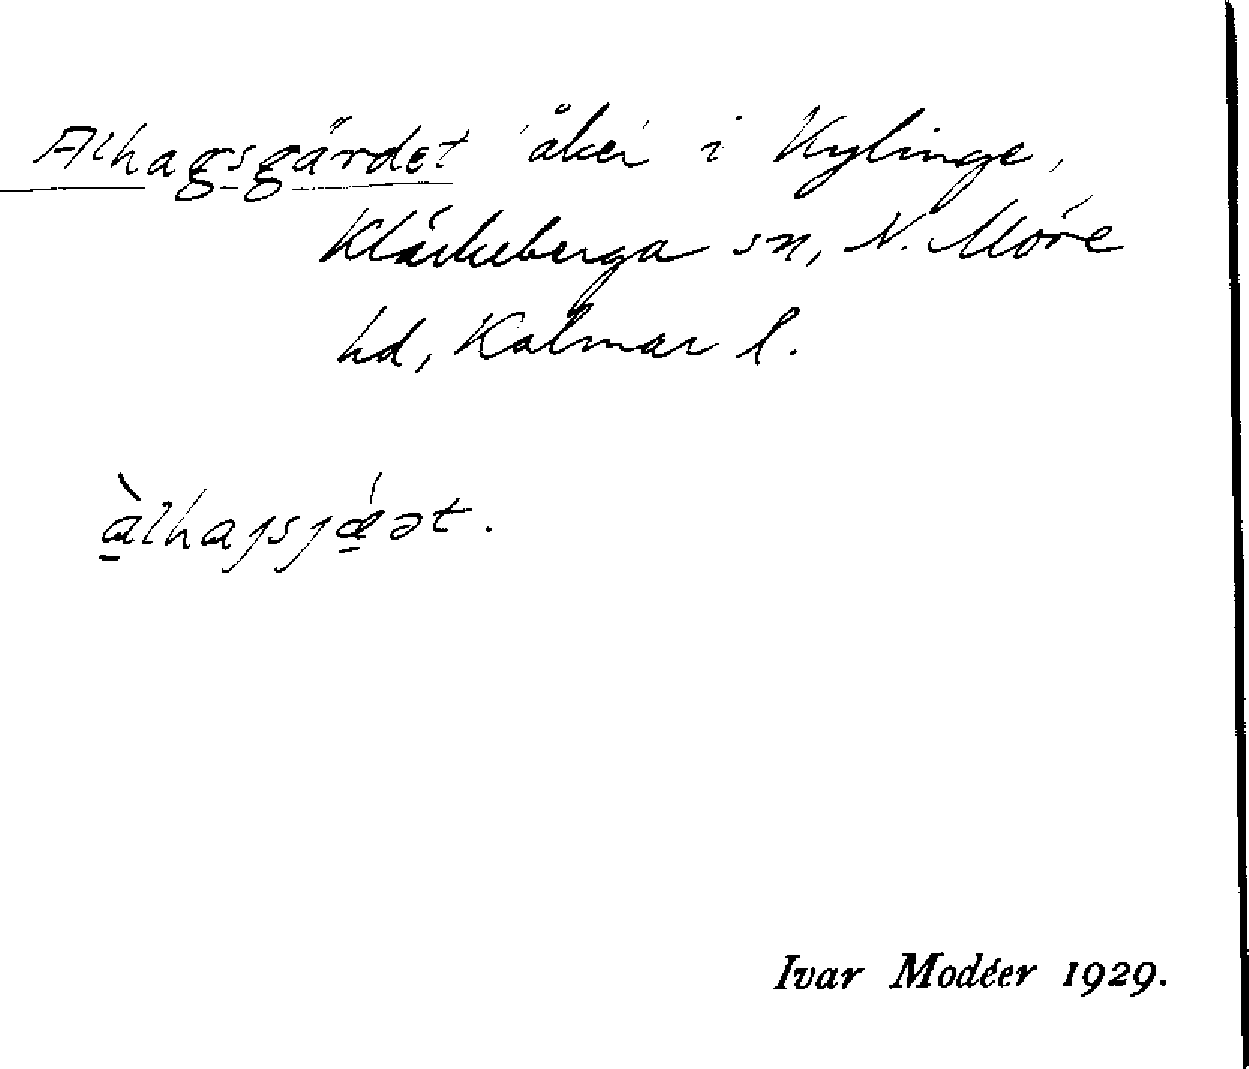 Alhagsgärdet 'åker' i Kylinge,
Kläckeberga sn, N. Möre
hd, Kalmar l.
àlhajsjǽət.
Ivar Modéer 1929.